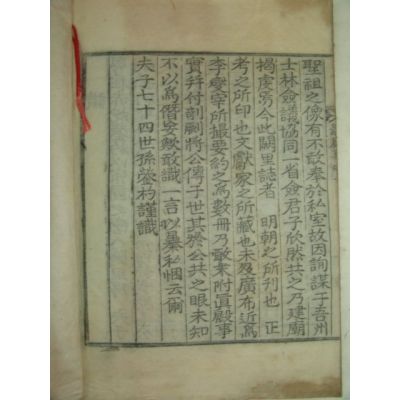 聖祖之像有不敢奉於私室故因詢謀于吾州
士林僉議協同一省僉君子欣然共之乃建廟
揭虔焉今此闕里誌者 明朝之所刊也 正
考之所印也文獻家之所藏也未及廣布近爲
李慶宰所撮要約之爲數冊乃敢彙附眞殿事
實幷付剞劂將公傳于世其於公共之眼未知
不以爲僭妄歟敢識一言以暴私悃云爾
夫子七十四世孫 謹識